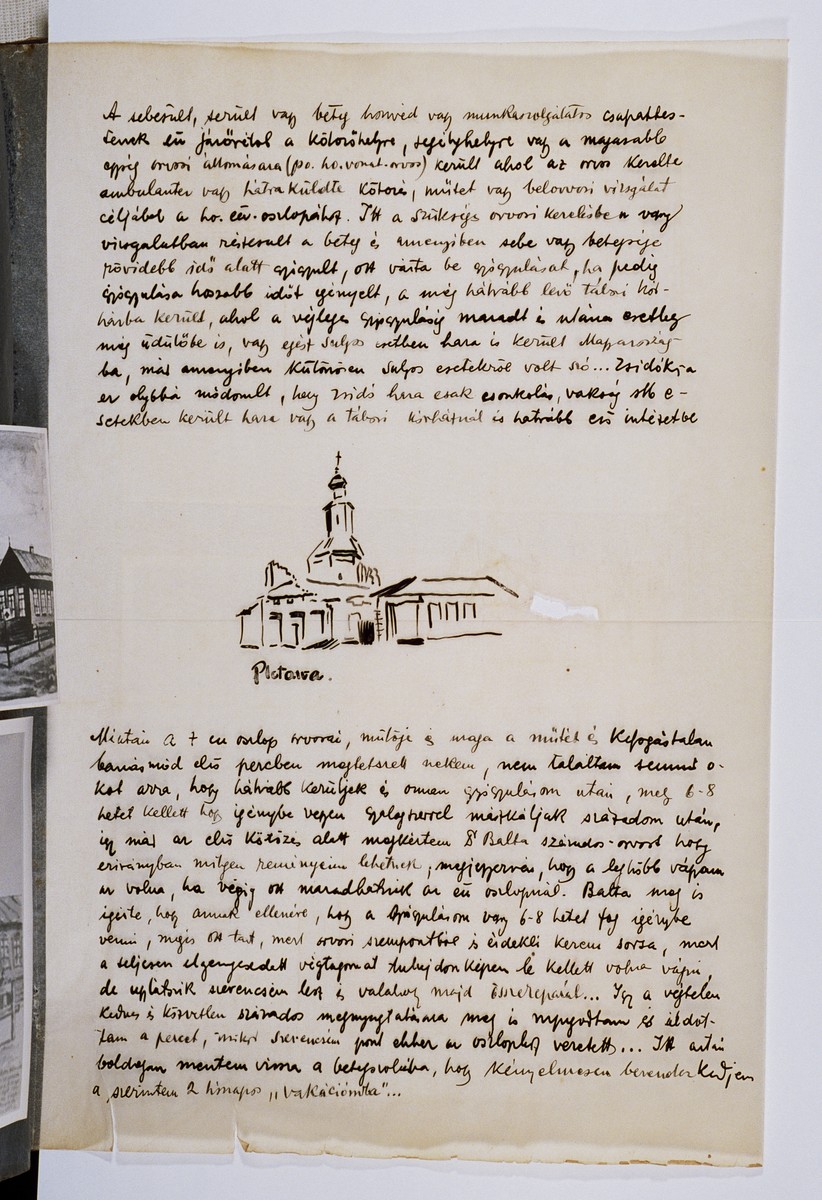 A sebesült, sérült vagy beteg honvéd vagy munkaszolgálatos csapattes-
tének eü járőrétől a kötözőhelyre, segélyhelyre vagy a magasabb
egység orvosi állomására (po. ho. vonat-orvos) került ahol az orvos kezelte
ambulanter vagy hátra küldte kötözés, műtét vagy belorvosi vizsgálat
céljából a ho. eü. oszlopához. Itt a szükséges orvosi kezelésben vagy
vizsgálatban részesült a beteg és amenyiben sebe vagy betegsége
rövidebb idő alatt gyógyult, ott várta be gyógyulását, ha pedig
gyógyulása hosszabb időt igényelt, a még hátrább levő tábori kór-
házba került, ahol a végleges gyógyulásig maradt és utána esetleg
még üdülőbe is, vagy egész súlyos esetben haza is került Magyarország-
ba, már amenyiben különösen súlyos esetekről volt szó... Zsidókra
ez olybbá módosult, hogy zsidó haza csak csonkolás, vakság stb e-
setekben került haza vagy a tábori kórháznál is hátrább eső intézetbe
Plotawa.
Miután a 7 eü oszlop orvosai, műtője és maga a műtét és kifogástalan
bánásmód első percben megtetszett nekem, nem találtam semmi o-
kot arra, hogy hátrább kerüljek és onnan gyógyulásom után, meg 6-8
hetet kellett hogy igénybe vegyen gyalogszerrel mászkáljak századom után,
így már az első kötözés alatt megkértem Dr Balta százados-orvost hogy
ezirányban milyen reményeim lehetnek, megjegyezvén, hogy a legfőbb vágyam
az volna, ha végig ott maradhatnék az eü oszlopnál. Balta meg is
igérte, hogy annak ellenére, hogy a gyógyulásom vagy 6-8 hetet fog igénybe
venni, mégis ott tart, mert orvosi szempontból is érdekli kezem sorsa, mert
a teljesen elgennyesedett végtagomat tulajdonképen le kellett volna vágni,
de úgylátszik szerencsém lesz és valahogy majd összereparál... Így a végtelen
kedves és közvetlen százados megnyugtatására meg is nyugodtam és áldot-
tam a percet, mikor szerencsém pont ehhez az oszlophoz vezetett... Itt aztán
boldogan mentem vissza a betegszobába, hogy kényelmesen berendezkedjem
a, szerintem 2 hónapos „vakációmba"...